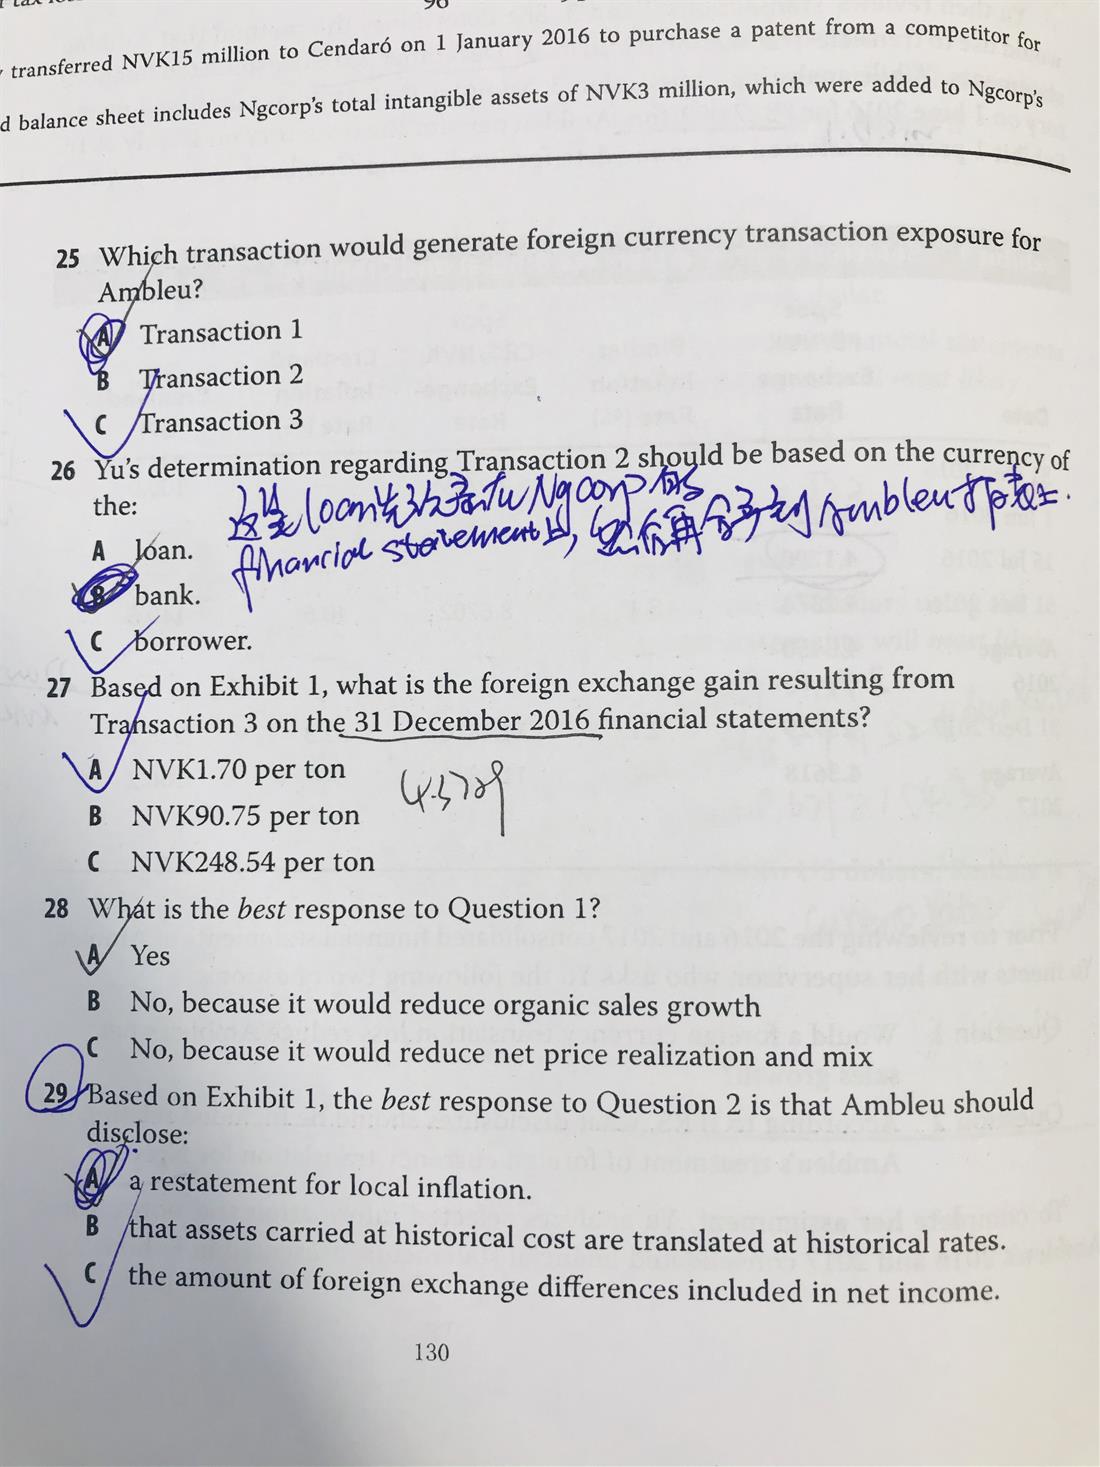 96
transferred NVK15 million to Cendaró on 1 January 2016 to purchase a patent from a competitor for
d balance sheet includes Ngcorp's total intangible assets of NVK3 million, which were added to Ngcorp's
25 Which transaction would generate foreign currency transaction exposure for
Ambleu?
A Transaction 1
B Transaction 2
C Transaction 3
26 Yu's determination regarding Transaction 2 should be based on the currency of
the:
这笔loan先放在Ngcorp的
financial statement里,然后再合并到Ambleu的报表上.
A loan.
B bank.
C borrower.
27 Based on Exhibit 1, what is the foreign exchange gain resulting from
Transaction 3 on the 31 December 2016 financial statements?
A NVK1.70 per ton
4.3729
B NVK90.75 per ton
C NVK248.54 per ton
28 What is the best response to Question 1?
A Yes
B No, because it would reduce organic sales growth
C No, because it would reduce net price realization and mix
29 Based on Exhibit 1, the best response to Question 2 is that Ambleu should
disclose:
A a restatement for local inflation.
B that assets carried at historical cost are translated at historical rates.
C the amount of foreign exchange differences included in net income.
130